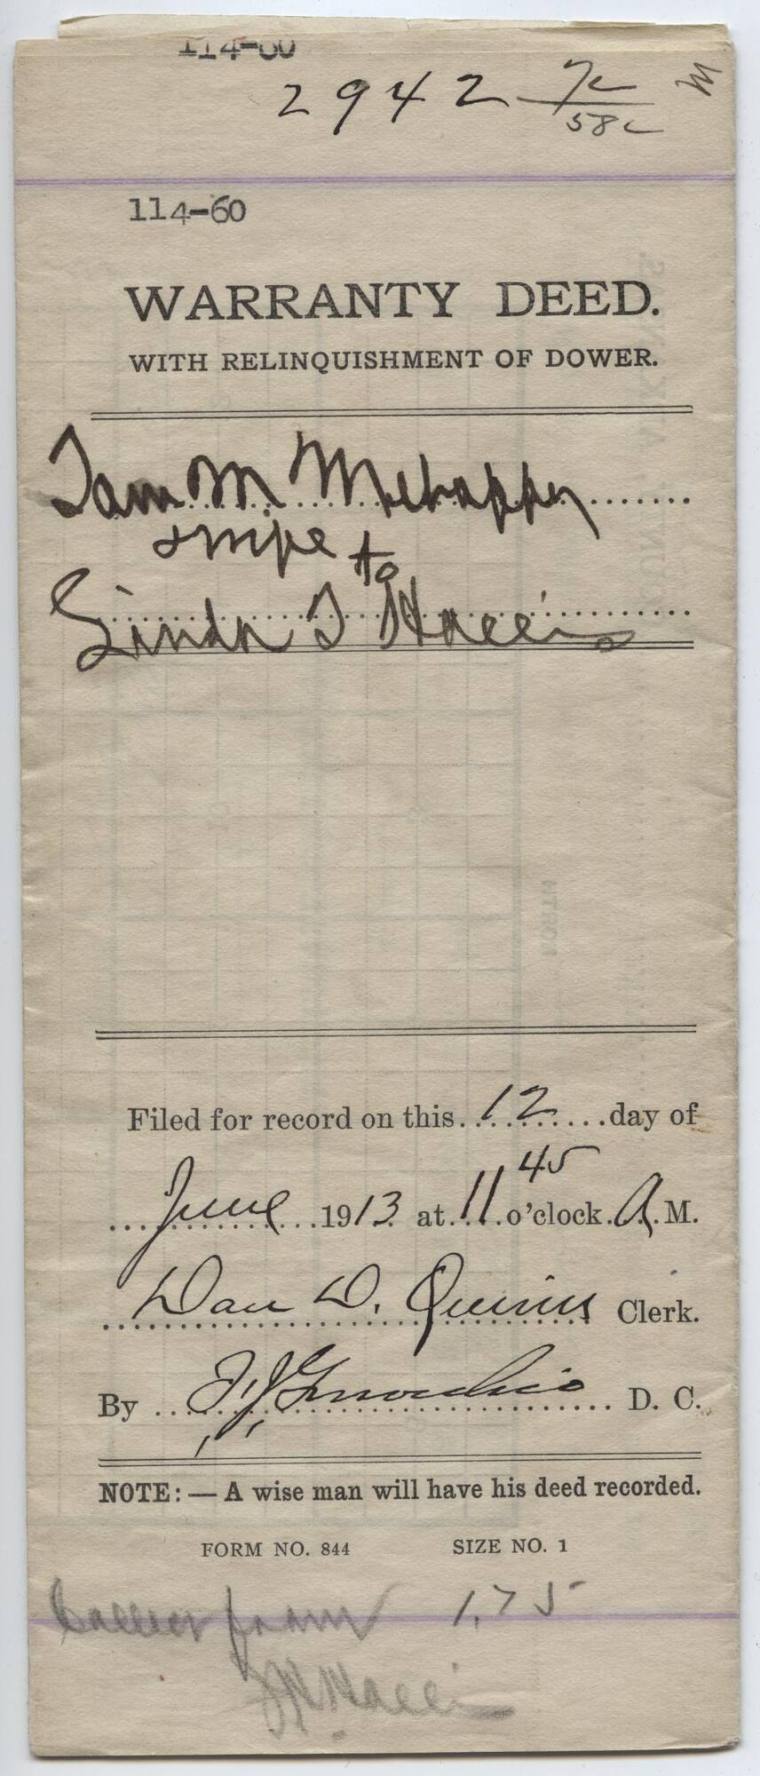 114-60
2942 7c
58c
M
114-60
WARRANTY DEED.
WITH RELINQUISHMENT OF DOWER.
Sam M
& wife to
Linda T
Filed for record on this 12 day of
June 1913 at 11 45 o'clock A. M.
Dan D. Quinn Clerk.
By D. C.
NOTE: — A wise man will have his deed recorded.
FORM NO. 844 SIZE NO. 1
from 1.75